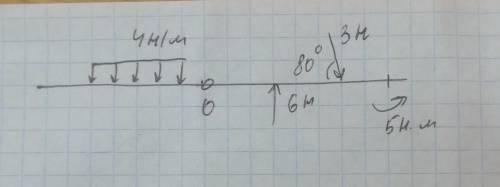 4н/м
80° 3н
0
6н
5н.м